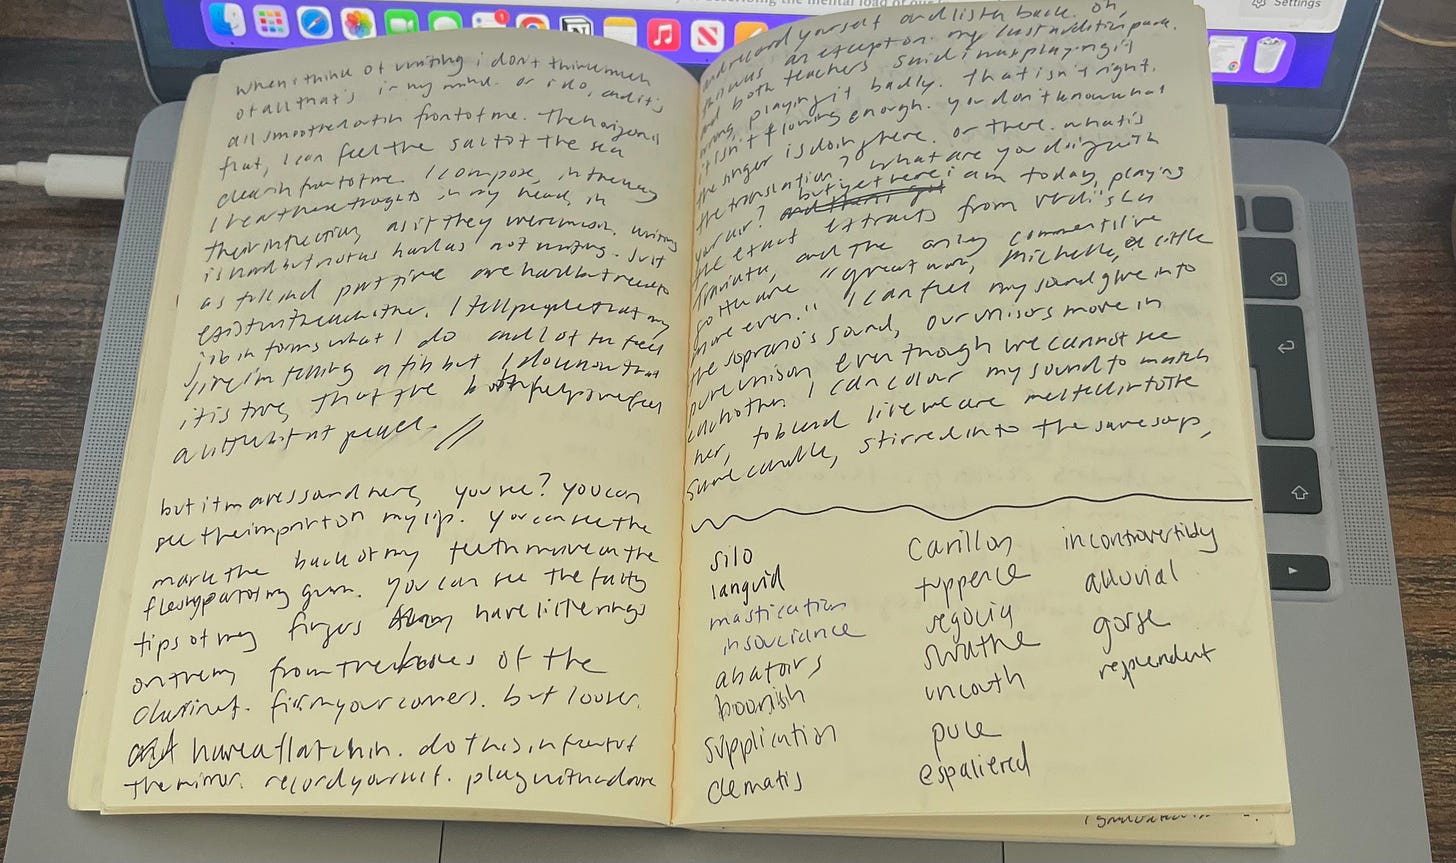 describing the mental load of
Settings
when i think of writing i don't think much
of all that's in my mind. or i do, and it's
all smoothed out in front of me. The horizon
flat, I can feel the salt of the sea
clear in front of me. I compose, in the way
I hear these thoughts in my head, in
their inflection, as if they were music. writing
is hard but not as hard as not writing. Just
as full and part time are hard but needed to
exist with each other. I tell people that my
job informs what I do and I often feel
like i'm telling a fib but I do know that
it is true, that the both help me feel
a little bit at peace. //
but it makes sound here, you see? you can
see the imprint on my lip. you can see the
mark the back of my teeth make on the
fleshy part of my gum. you can see the faulty
tips of my fingers have little rings
on them from the holes of the
clarinet. firm your corners. but looser.
and have a flat chin. do this in front of
the mirror. record yourself. play with a drone
and record yourself and listen back. oh,
this was an exception. my last audition panel
and both teachers said i was playing it
wrong, playing it badly. that isn't right.
it isn't flowing enough. you don't know what
the singer is doing here. or there. what's
the translation? what are you doing with
your air? but yet here i am today, playing
the exact extracts from verdi's La
Traviata, and the only comments i've
got are "great work, Michelle, a little
more even." I can feel my sound give into
the soprano's sound, our unisons move in
pure unison even though we cannot see
each other. I can colour my sound to match
her, to blend like we are melted into the
same candle, stirred into the same soup,
silo
languid
mastication
insouciance
abatoirs
boorish
supplication
clematis
Carillon
tuppence
swathe
uncouth
puce
espaliered
incontrovertibly
alluvial
gorse
resplendent